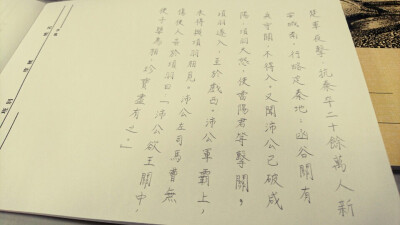 楚軍夜擊，坑秦卒二十餘萬人新
安城南。行略定秦地。函谷關有
兵守關，不得入。又聞沛公已破咸
陽，項羽大怒，使當陽君等擊關，
項羽遂入，至於戲西。沛公軍霸上，
未得與項羽相見。沛公左司馬曹無
傷使人言於項羽曰「沛公欲王關中，
使子嬰為相，珍寶盡有之。」